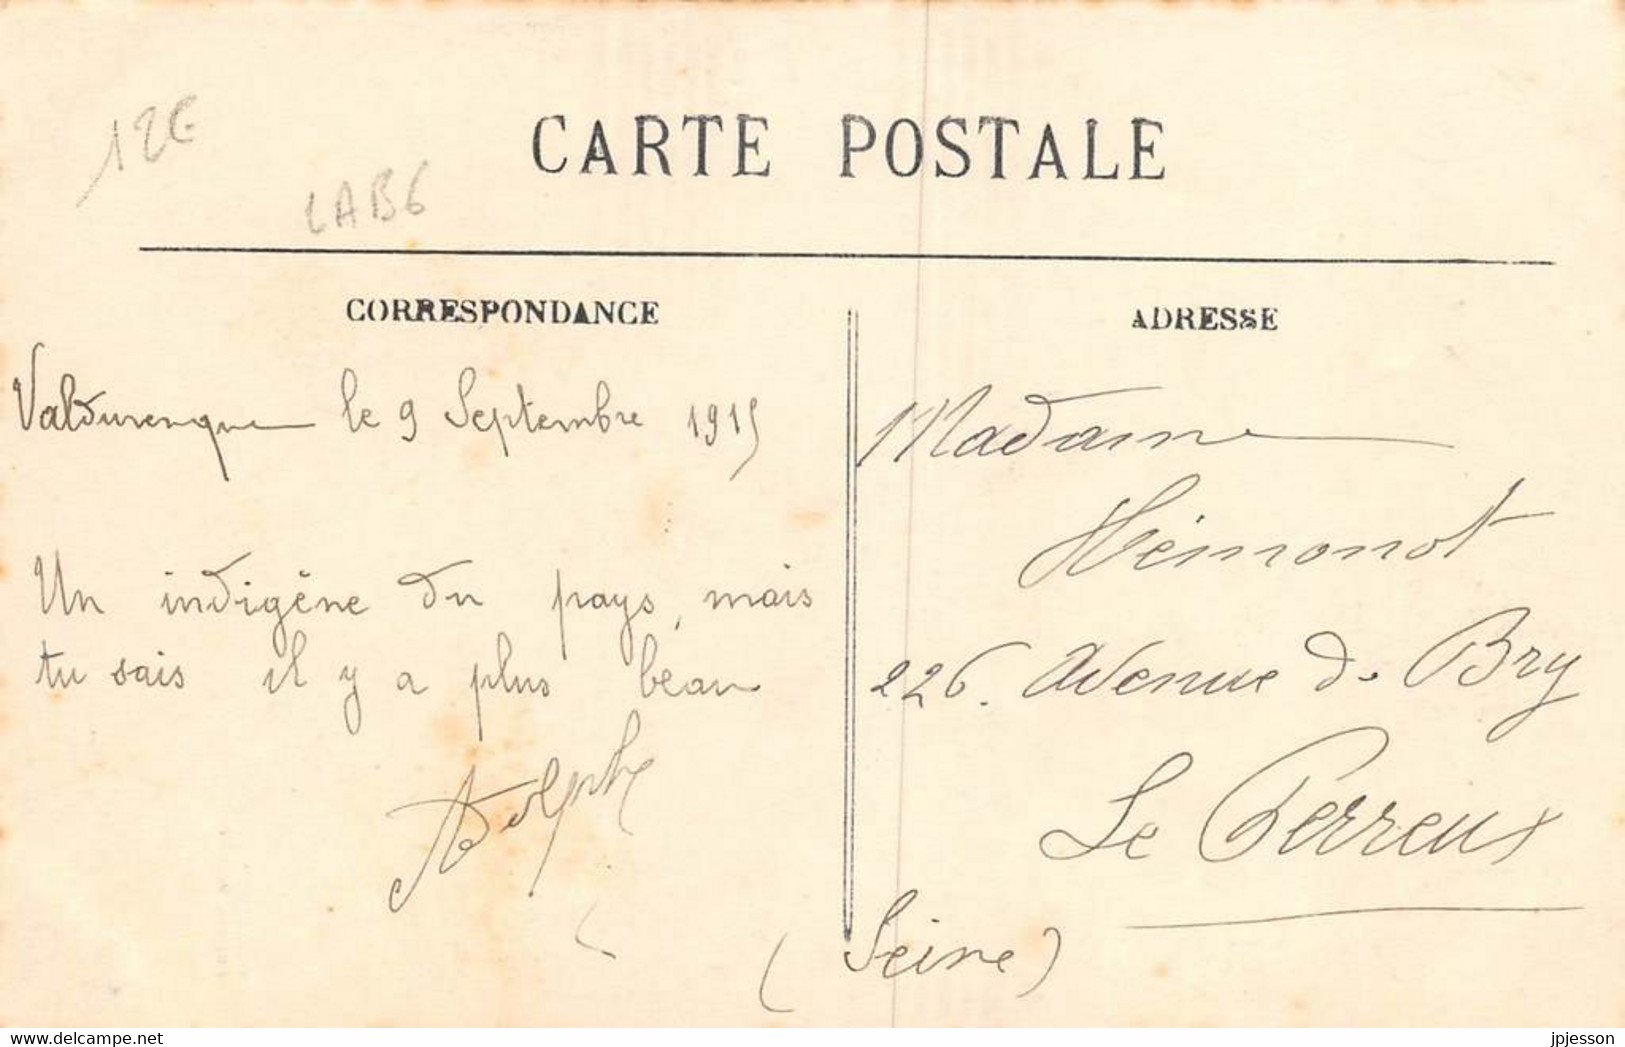 12€
LAB6
CARTE POSTALE
CORRESPONDANCE
Valdurenque le 9 Septembre 1915
Un indigène du pays, mais
tu sais il y a plus beau
Adolphe
ADRESSE
Madame
Hémonot
226. Avenue de Bry
Le Perreux
(Seine)
jpjesson